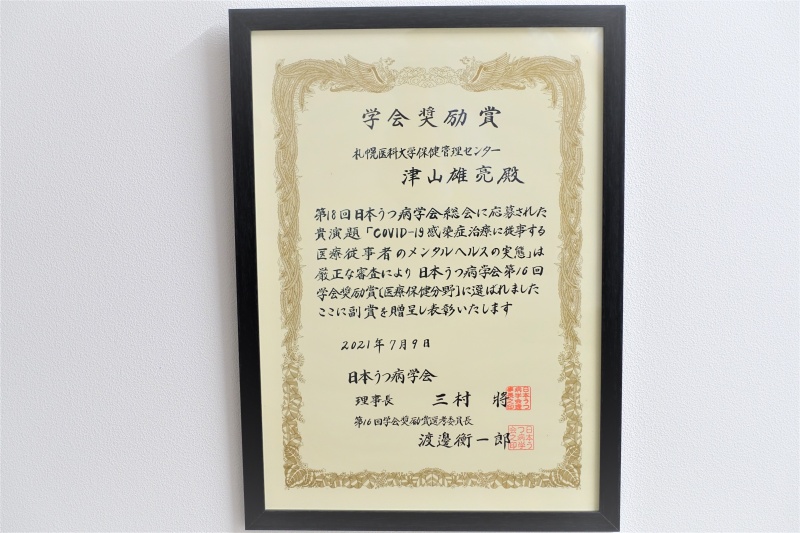 学会奨励賞
札幌医科大学保健管理センター
津山雄亮殿
第18回日本うつ病学会総会に応募された
貴演題「COVID-19感染症治療に従事する
医療従事者のメンタルヘルスの実態」は
厳正な審査により日本うつ病学会第16回
学会奨励賞[医療保健分野]に選ばれました
ここに副賞を贈呈し表彰いたします
2021年7月9日
日本うつ病学会
理事長 三村 將
日本うつ病学会理事長之印
第16回学会奨励賞選考委員長
渡邊衡一郎
日本うつ病学会之印